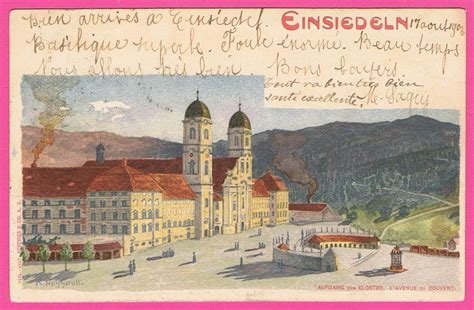 Bien arrivés à Einsiedel
EINSIEDELN
17 août 190
Basilique superbe. Foule énorme. Beau temps
Nous allons très bien Bons baisers
Tout va bien très bien
santé excellente.
AUFGANG ZUM KLOSTER. L'AVENUE DU COUVENT.